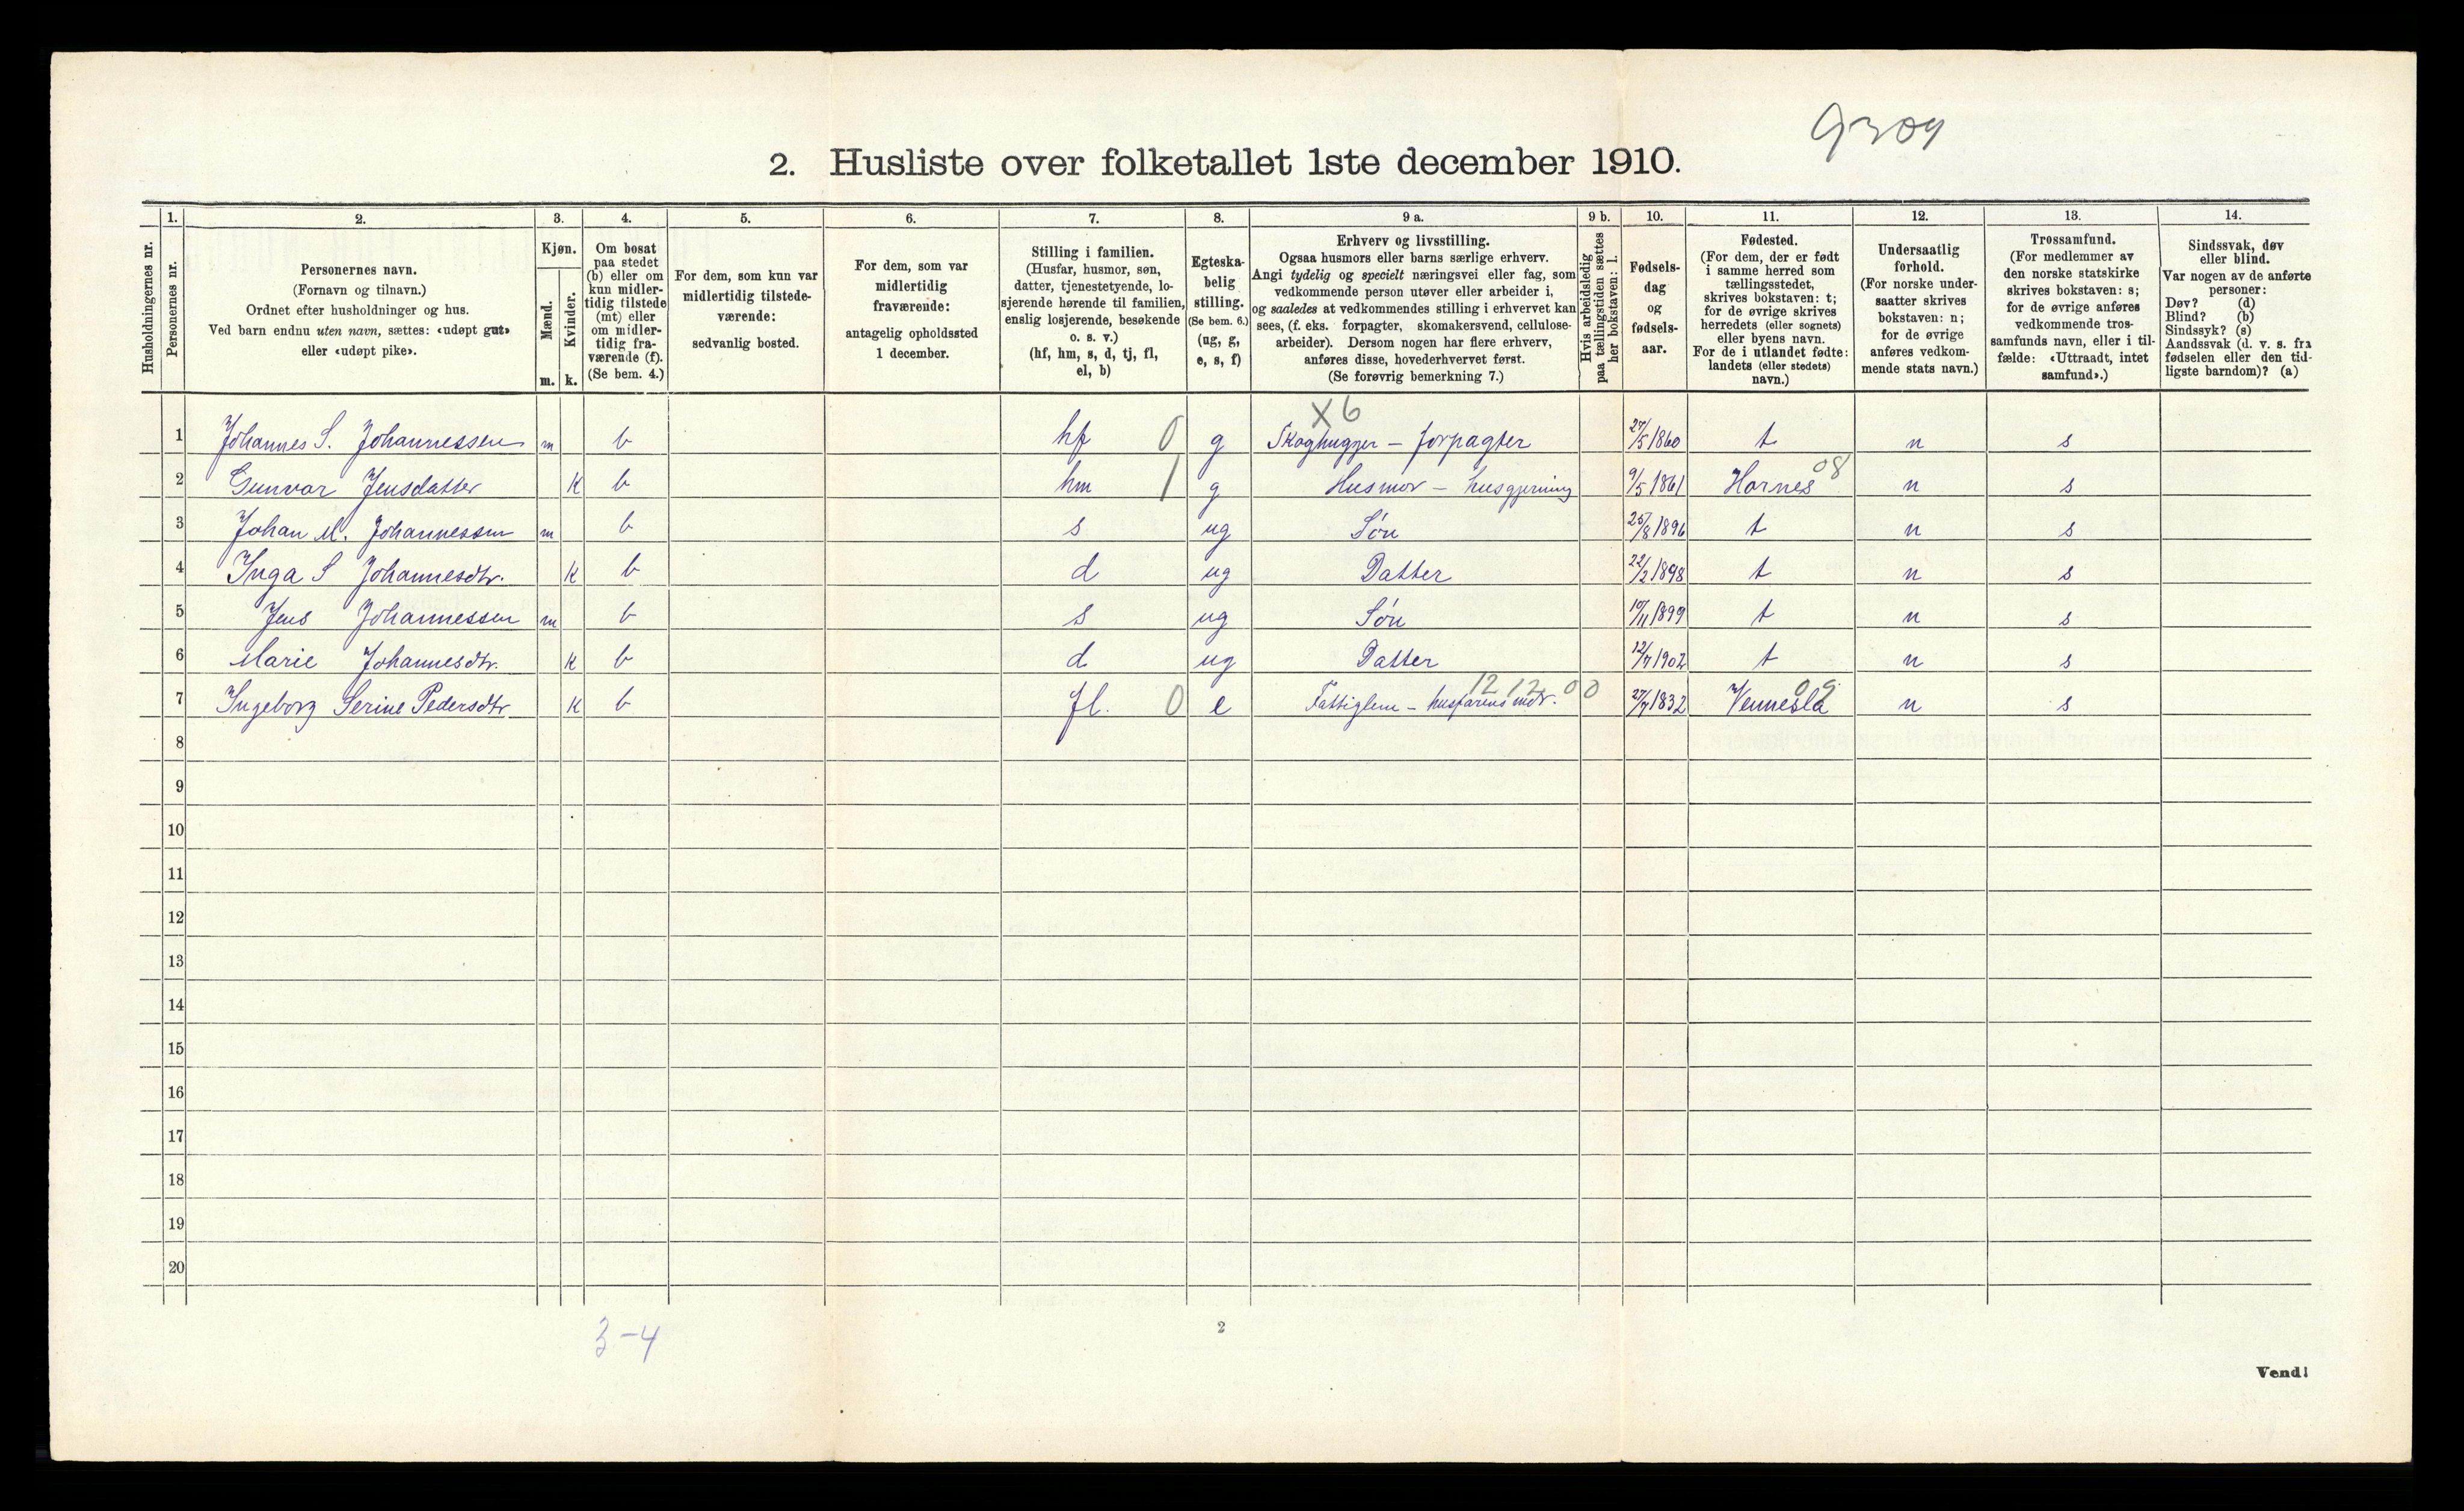 9309
2. Husliste over folketallet 1ste december 1910.
Husholdningernes nr.
1.
Personernes nr.
2.
Personernes navn.
(Fornavn og tilnavn.)
Ordnet efter husholdninger og hus.
Ved barn endnu uten navn, sættes: «udøpt gut»
eller «udøpt pike».
3.
Kjøn.
Mænd.
Kvinder.
m. k.
4.
Om bosat
paa stedet
(b) eller om
kun midler-
tidig tilstede
(mt) eller
om midler-
tidig fra-
værende (f).
(Se bem. 4.)
5.
For dem, som kun var
midlertidig tilstede-
værende:
sedvanlig bosted.
6.
For dem, som var
midlertidig
fraværende:
antagelig opholdssted
1 december.
7.
Stilling i familien.
(Husfar, husmor, søn,
datter, tjenestetyende, lo-
sjerende hørende til familien,
enslig losjerende, besøkende
o. s. v.)
(hf, hm, s, d, tj, fl,
el, b)
8.
Egteska-
belig
stilling.
(Se bem. 6.)
(ug, g,
e, s, f)
9 a.
Erhverv og livsstilling.
Ogsaa husmors eller barns særlige erhverv.
Angi tydelig og specielt næringsvei eller fag, som
vedkommende person utøver eller arbeider i,
og saaledes at vedkommendes stilling i erhvervet kan
sees, (f. eks. forpagter, skomakersvend, cellulose-
arbeider). Dersom nogen har flere erhverv,
anføres disse, hovederhvervet først.
(Se forøvrig bemerkning 7.)
9 b.
Hvis arbeidsledig
paa tællingstiden sættes
her bokstaven: l.
10.
Fødsels-
dag
og
fødsels-
aar.
11.
Fødested.
(For dem, der er født
i samme herred som
tællingsstedet,
skrives bokstaven: t;
for de øvrige skrives
herredets (eller sognets)
eller byens navn.
For de i utlandet fødte:
landets (eller stedets)
navn.)
12.
Undersaatlig
forhold.
(For norske under-
saatter skrives
bokstaven: n;
for de øvrige
anføres vedkom-
mende stats navn.)
13.
Trossamfund.
(For medlemmer av
den norske statskirke
skrives bokstaven: s;
for de øvrige anføres
vedkommende tros-
samfunds navn, eller i til-
fælde: «Uttraadt, intet
samfund».)
14.
Sindssvak, døv
eller blind.
Var nogen av de anførte
personer:
Døv? (d)
Blind? (b)
Sindssyk? (s)
Aandssvak (d. v. s. fra
fødselen eller den tid-
ligste barndom)? (a)
X6
1 Johannes S. Johannessen m b hf 0 g Skoghugger - forpagter 27/5 1860 t n s
2 Gunvor Jensdatter k b hm 1 g Husmor - husgjerning 9/5 1861 Hornes 08 n s
3 Johan M. Johannessen m b s ug Søn 25/8 1896 t n s
4 Inga S Johannesdtr. k b d ug Datter 22/2 1898 t n s
5 Jens Johannessen m b s ug Søn 10/11 1899 t n s
6 Marie Johannesdtr. k b d ug Datter 12/7 1902 t n s
12 12 00 09
7 Ingeborg Serine Pedersdtr k b fl. 0 e Fattiglem - husfarens mor. 27/7 1832 Vennesla n s
8
9
10
11
12
13
14
15
16
17
18
19
20
3-4
2
Vend!